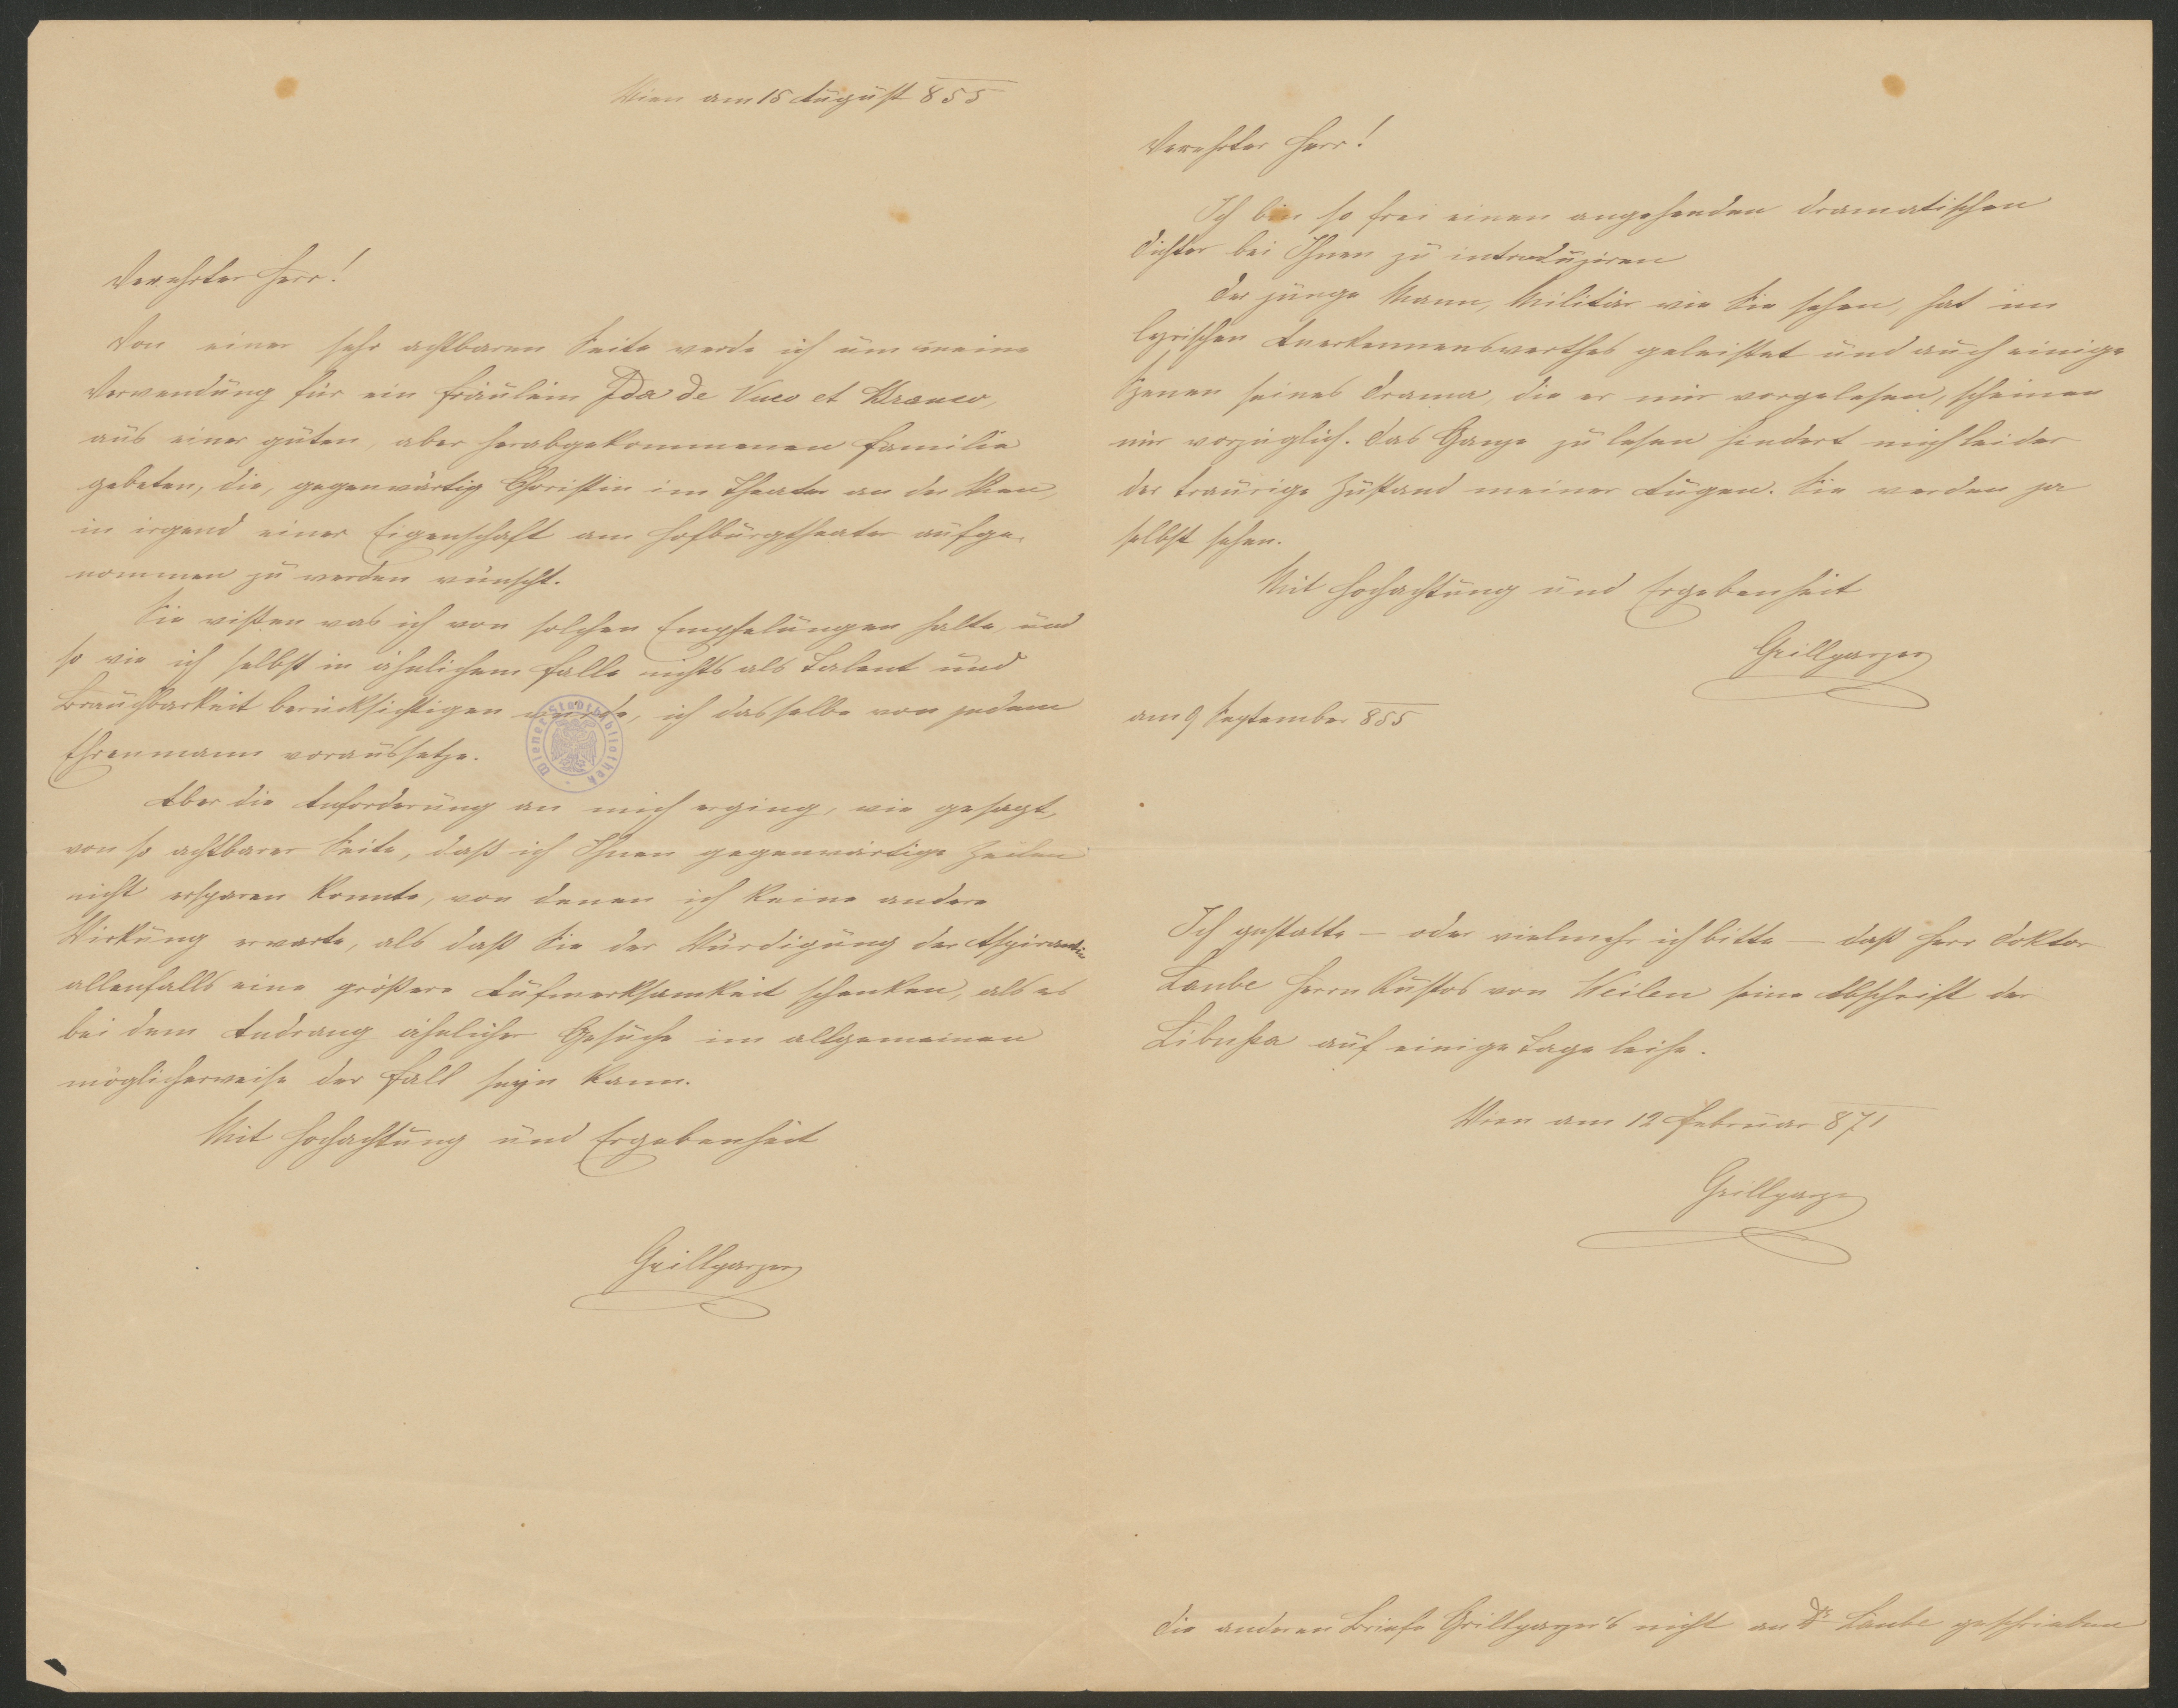 Wien am 15 August 855
Verehrter Herr!
Von einer sehr achtbaren Seite werde ich um meine
Verwendung für ein Fräulein Ida de Vuco et Branco,
aus einer guten, aber herabgekommenen Familie
gebeten, die, gegenwärtig Choristin im Theater an der Wien,
in irgend einer Eigenschaft am Hofburgtheater aufge-
nommen zu werden wünscht.
Sie wißen was ich von solchen Empfelungen halte, und
so wie ich selbst in ähnlichem Falle nichts als Talent und
Brauchbarkeit berücksichtigen würde, ich dasselbe von jedem
Ehrenmann voraussetze.
Wiener Stadtbibliothek
Aber die Anforderung an mich erging, wie gesagt,
von so achtbarer Seite, daß ich Ihnen gegenwärtige Zeilen
nicht ersparen konnte, von denen ich keine andere
Wirkung erwarte, als daß Sie der Würdigung der Aspirantin
allenfalls eine größere Aufmerksamkeit schenken, als es
bei dem Andrang ähnlicher Gesuche im allgemeinen
möglicherweise der Fall seyn kann.
Mit Hochachtung und Ergebenheit
Grillparzer
Verehrter Herr!
Ich bin so frei einen angehenden dramatischen
Dichter bei Ihnen zu introduziren
Der junge Mann, Militär wie Sie sehen, hat im
lyrischen Anerkennenswerthes geleistet und auch einige
Szenen seines Drama, die er mir vorgelesen, scheinen
mir vorzüglich. Das Ganze zu lesen hindert mich leider
der traurige Zustand meiner Augen. Sie werden ja
selbst sehen.
Mit Hochachtung und Ergebenheit
Grillparzer
am 9 September 855
Ich gestatte – oder vielmehr ich bitte – daß Herr Doktor
Laube Herrn Kustos von Weilen seine Abschrift der
Libussa auf einige Tage leihe.
Wien am 12 Februar 871
Grillparzer
Die anderen Briefe Grillparzer's nicht an Dr Laube geschrieben